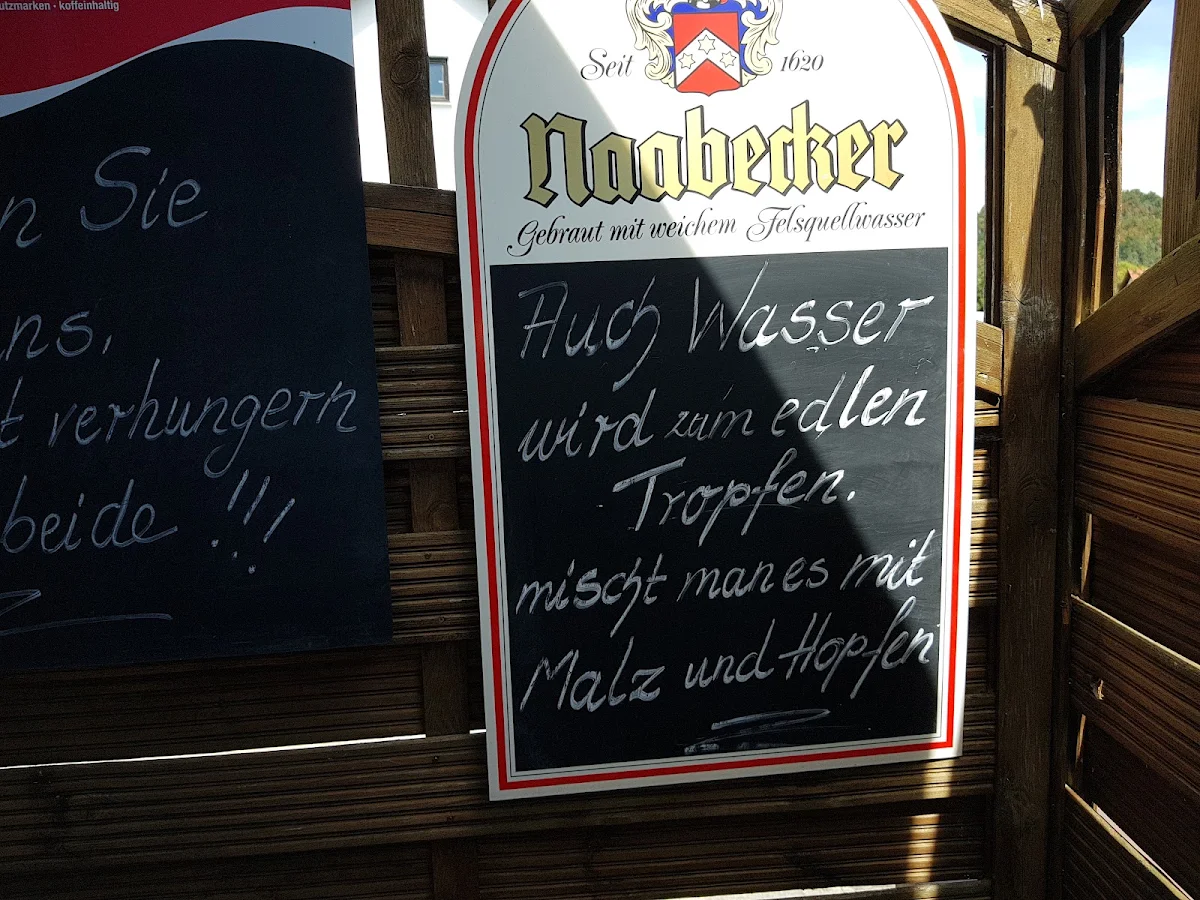 utzmarken · koffeinhaltig
n Sie
ns,
t verhungern
beide !!!
Seit 1620
Naabecker
Gebraut mit weichem Felsquellwasser
Auch Wasser
wird zum edlen
Tropfen.
mischt man es mit
Malz und Hopfen